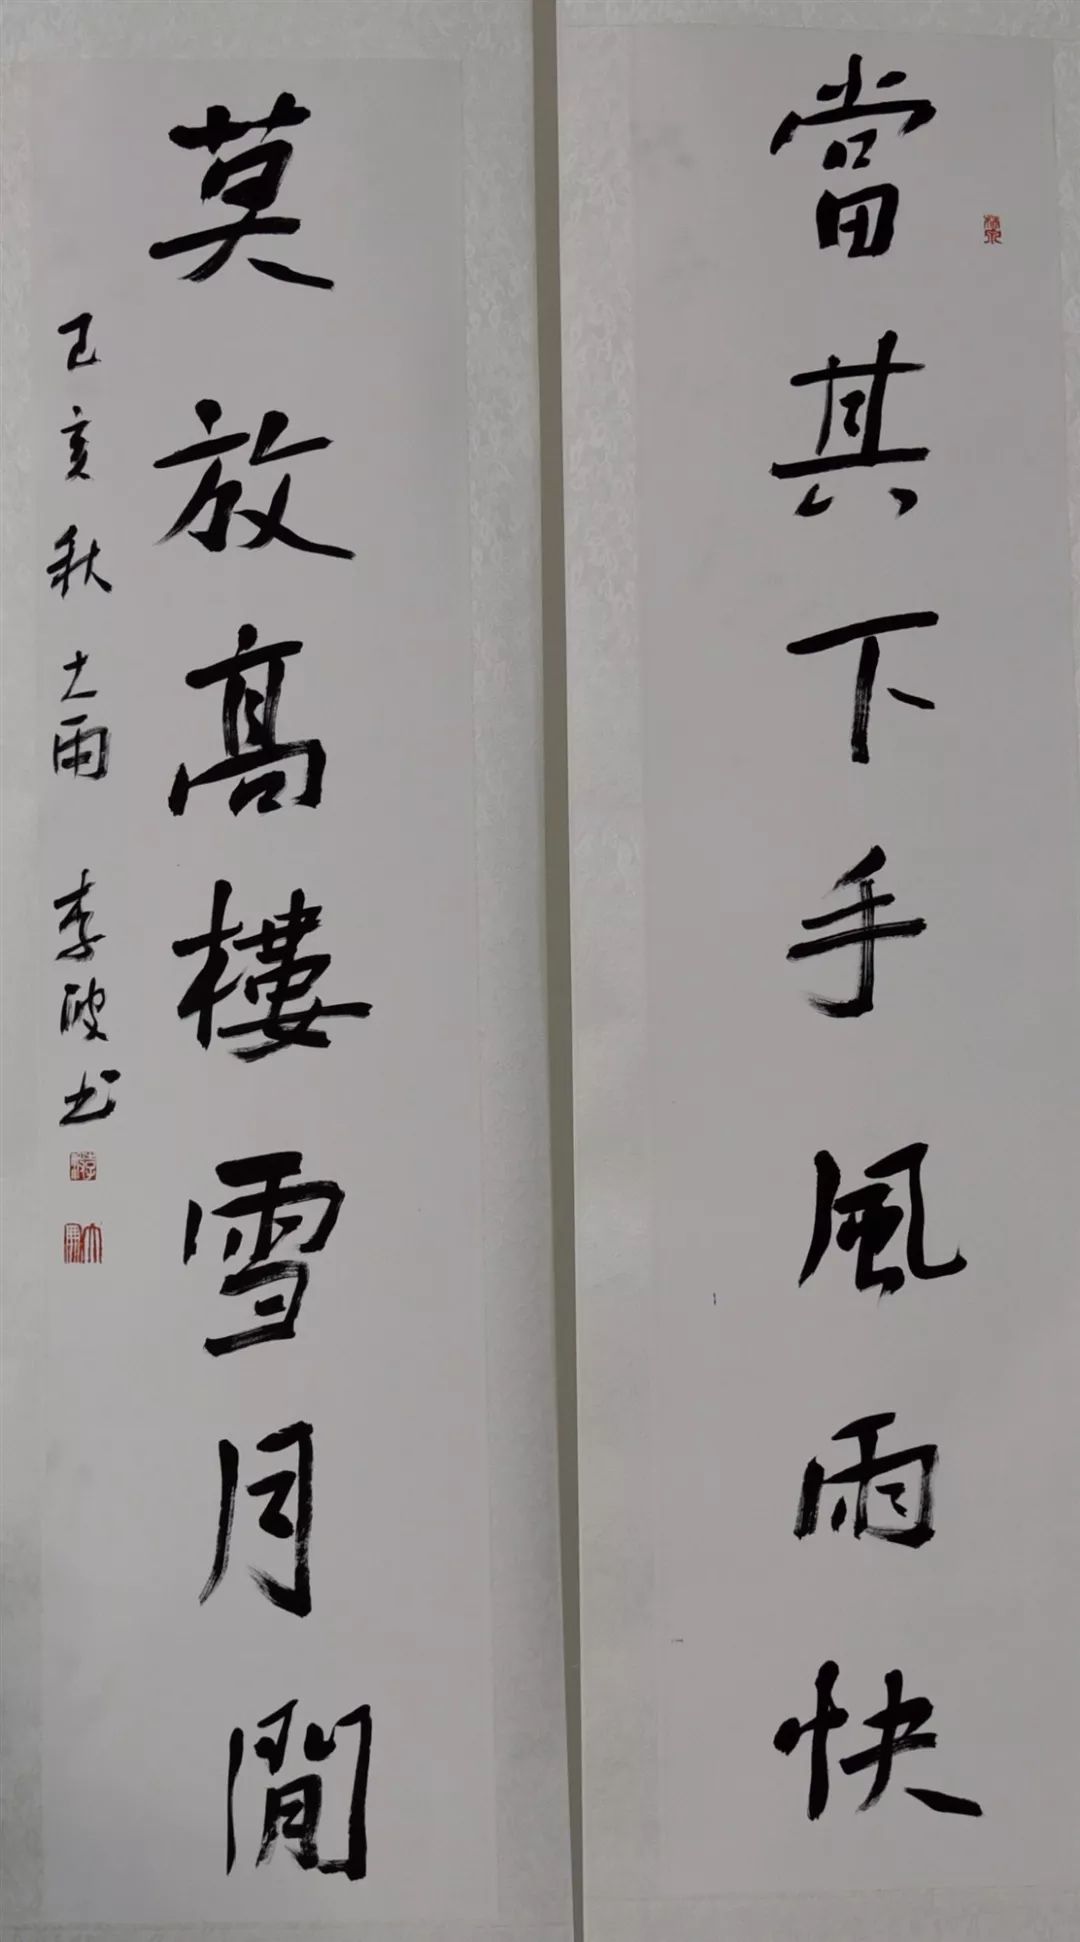 當其下手風雨快
莫放高樓雪月間
己亥秋大雨 李波书